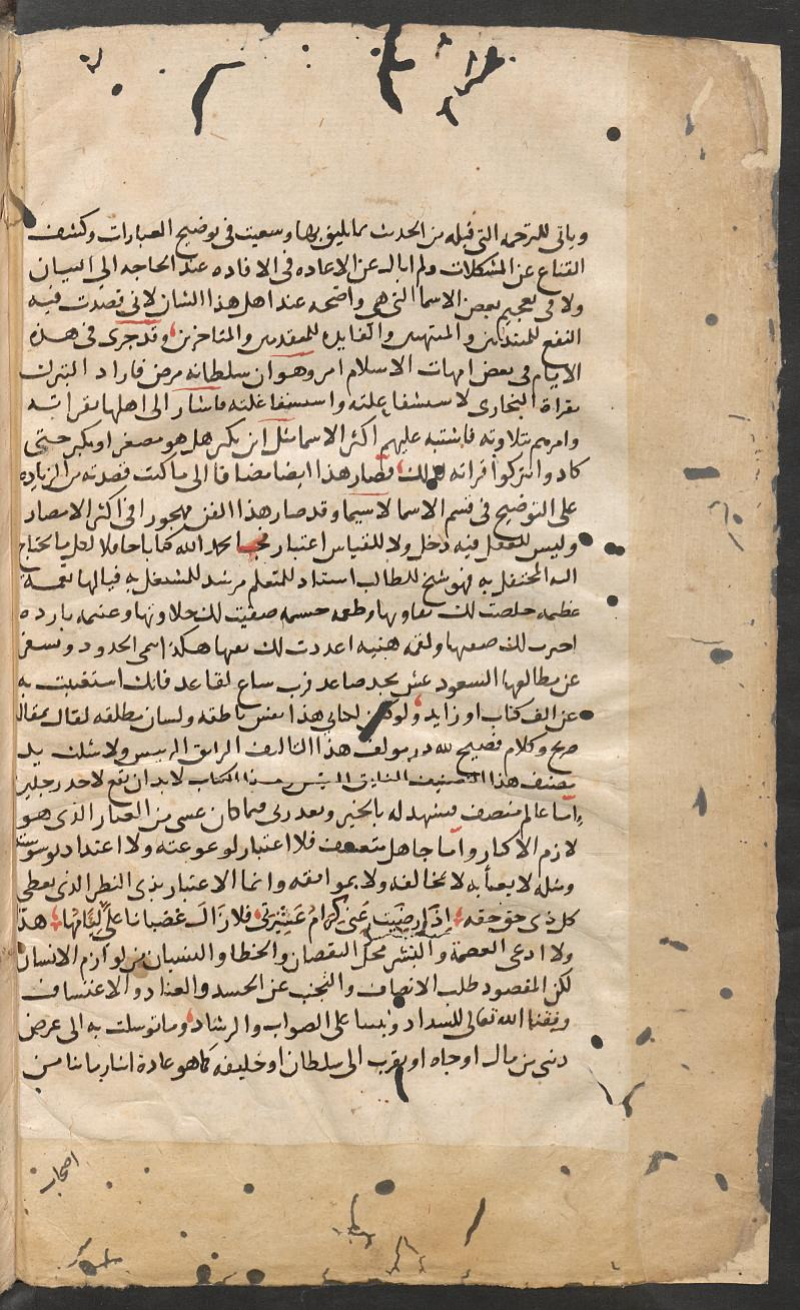 وياتي للترجمه التي قبله من الحدث ما يليق بها وسعيت في توضيح العبارات وكشف
القناع عن المشكلات ولم ابال عن الاعاده في الافاده عند الحاجه الى البيان
ولا في تعجيم بعض الاسما التي هي واضحه عند اهل هذا الشان لاني قصدت فيه
النفع للمبتدىن والمنتهىن والفايده للمتقدمىن والمتاخرين وقد جرى في هذه
الايام في بعض امهات الاسلام امر وهو ان سلطانه مرض فاراد التبرك
بقراة البخارى لاستشفا علته واستشفا غلته فاشار الى اهلها بقراته
وامرهم بتلاوته فاشتبه عليهم اكثر الاسما مثل ابن بكير هل هو مصغر او مكبر حتى
كادوا تركوا قراته لذلك فصار هذا ايضا مضافا الى ما كنت قصدته من الزياده
على التوضيح في قسم الاسما لاسيما وقد صار هذا الفن مهجورا في اكثر الامصار
وليس للعقل فيه دخل ولا للقياس اعتبار بحمد الله كتابا حافلا لعل ما يحتاج
اليه المحتفل به فهو شيخ للطالب استاد للمتعلم مرشد للمشتغل به فيالها نعمه
عظيمه خلصت لك وطعمه جسيمه صفيت لك حلاوتها وغنيمه بارده
ولقمه هنيه اعددت لك هكذا اسمى الحدود وتسفر
عن مطالعها السعود عش بجد صاعد فرب ساع لقاعد فانك استغنيت به
عن الف كتاب او زايد ولو كان لحالى هذا نفس ناطقه ولسان مطلقه لقال بمقال
صريح وكلام فصيح لله در مولف هذا التاليف الرائق الرئيس ولا شلت يد
مصنف هذا التصنيف الفائق النفيس وهذا الكتاب لا بد ان يقع لاحد رجلين
اما عالم منصف فيشهد له بالخير ويعذرنى فيما كان عسى من العثار الذى هو
لازم الاكثار واما جاهل متعسف فلا اعتبار لوعوعته ولا اعتداد بوسوسته
ومثله لا يعبأ به لا بمخالفته ولا بموافقته وانما الاعتبار بذى النظر الذى يعطى
كل ذى حق حقه اذا رضيت عنى كرام عشيرتى فلا زال غضبانا على لئامها هذا
ولا ادعى العصمة والبشر محل النقصان والخطا والنسيان من لوازم الانسان
لكن المقصود طلب الانصاف والتجنب عن الحسد والعناد والاعتساف
وفقنا الله تعالى للسداد وثبتنا على الصواب والرشاد وما توسلت به الى عرض
دنى من مال او جاه او تقرب الى سلطان او خليفه كما هو عادة ابنا زماننا من
اصحاب